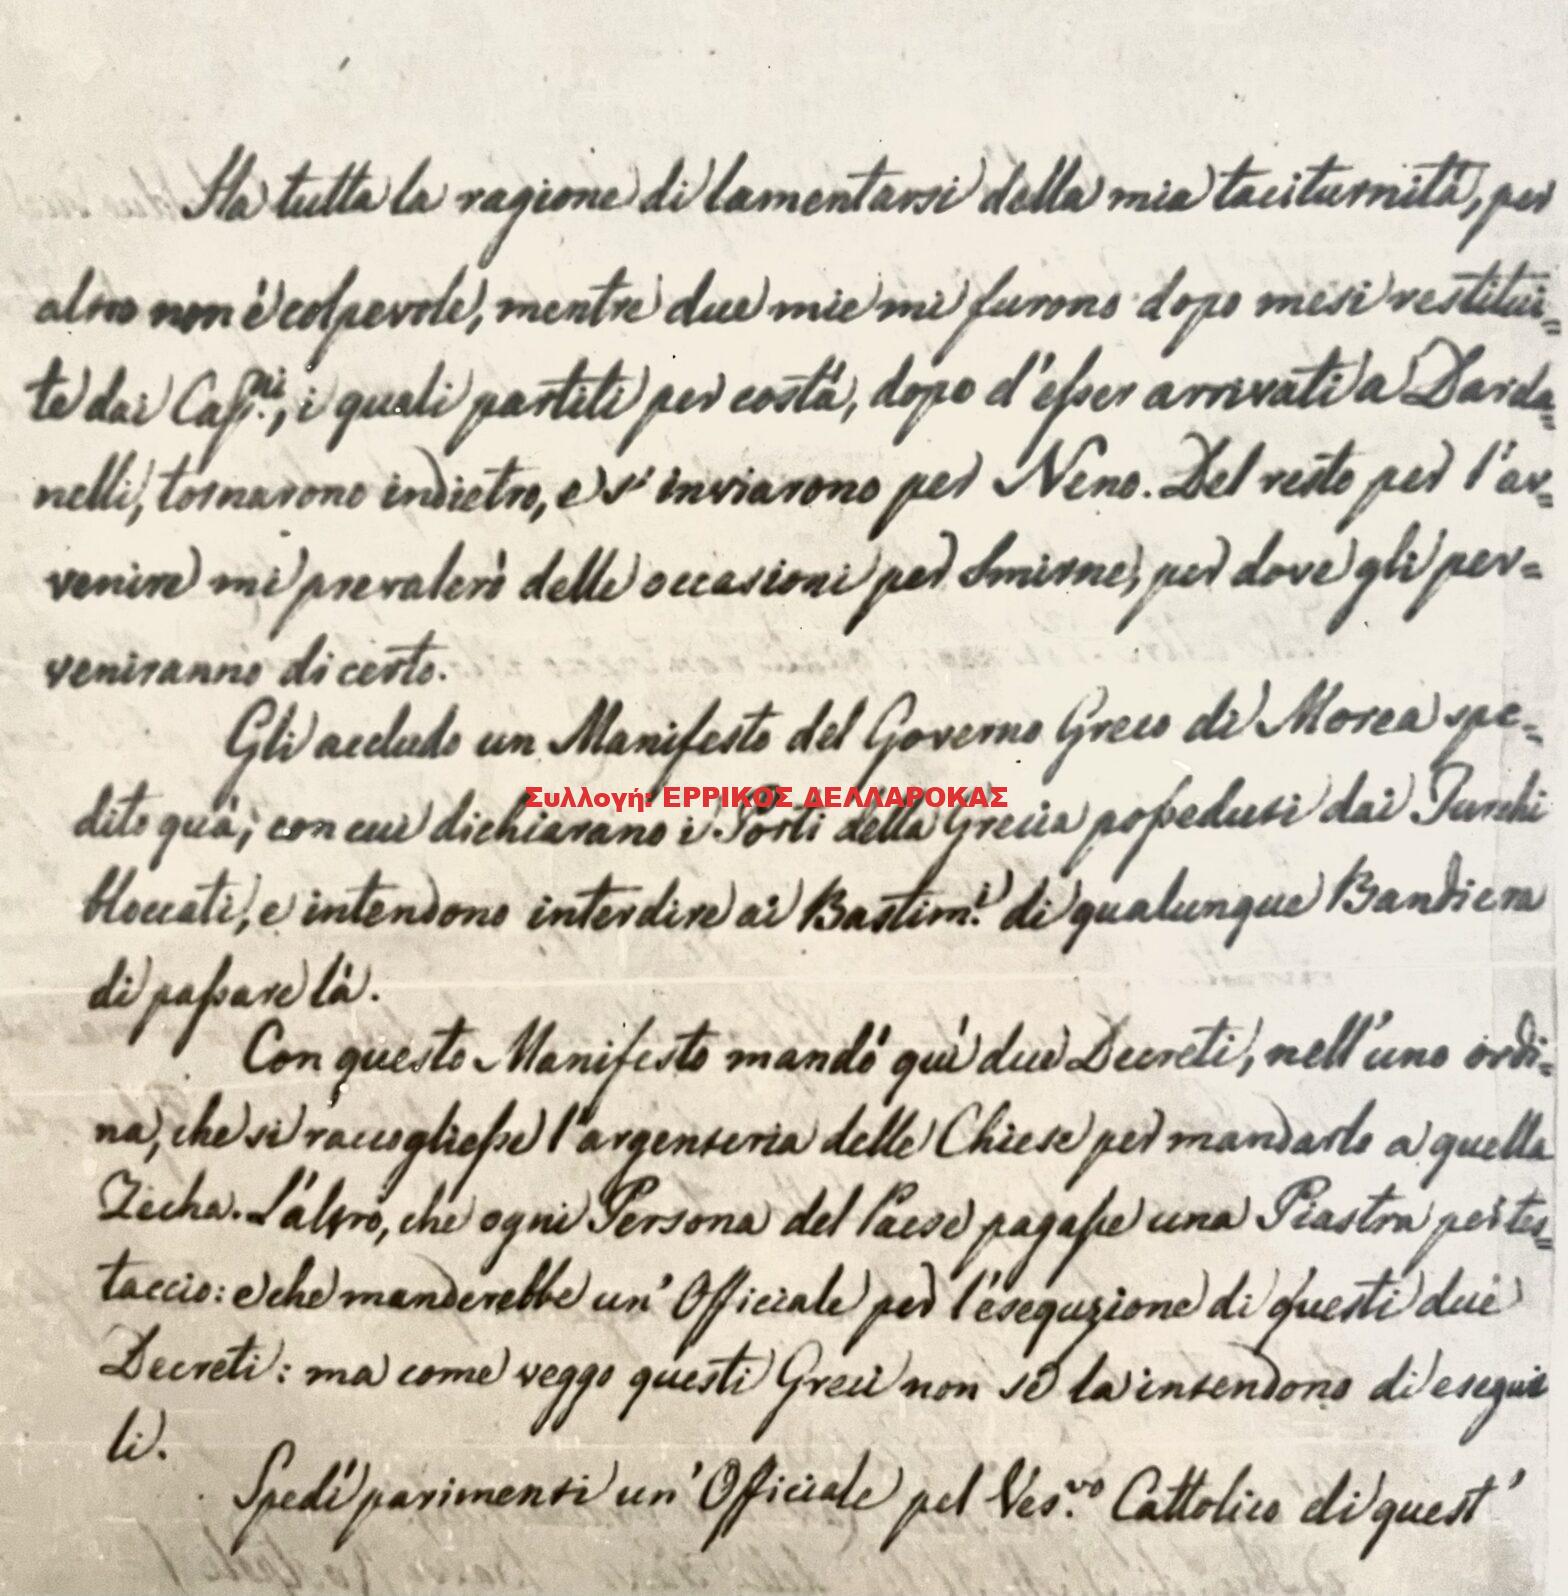 Ha tutta la ragione di lamentarsi della mia taciturnità, per
altro non é colpevole, mentre due mie mi furono dopo mesi restitui=
te dai Cap.ni, i quali partiti per costà, dopo d'esser arrivati a Darda=
nelli, tornarono indietro, e s'inviarono per Neno. Del resto per l'av=
venire mi prevalerò delle occasioni per Smirne, per dove gli per=
veniranno di certo.
Gli accludo un Manifesto del Governo Greco di Morea spe=
Συλλογή: ΕΡΡΙΚΟΣ ΔΕΛΛΑΡΟΚΑΣ
dito quà, con cui dichiarano i Porti della Grecia posseduti dai Turchi
bloccati, e intendono interdire ai Bastim.i di qualunque Bandiera
di passare là.
Con questo Manifesto mandò quì due Decreti, nell'uno ordi=
na, che si raccogliesse l'argenteria delle Chiese per mandarlo a quella
Zecha. L'altro, che ogni Persona del Paese pagasse una Piastra per tes=
taccio: e che manderebbe un' Officiale per l'esequzione di questi due
Decreti: ma come veggo questi Greci non se la intendono di eseguir
li.
Spedì parimenti un' Officiale pel Ves.vo Cattolico di quest'